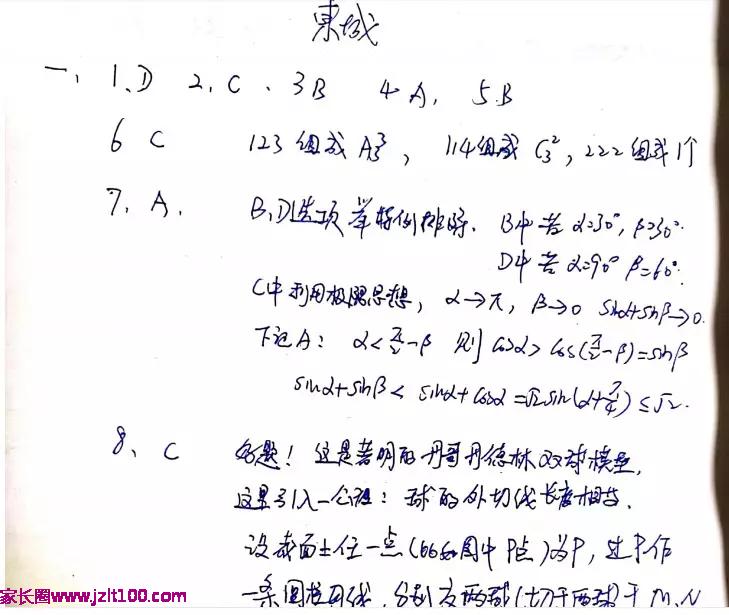 東城
一、1、D 2、C、3B 4A, 5.B
6 C 123组成 A₃³, 114组成 C₃², 222组成1个
7、A. B、D选项举特例排除. B中若 α=30°, β=30°.
D中若 α=90° β=60°.
C中利用极限思想, α→π, β→0 sinα+sinβ→0.
下证A: α<π/2-β 则 cosα>cos(π/2-β)=sinβ
sinα+sinβ< sinα+cosα=√2sin(α+π/4)≤√2.
8、C 好题! 这是著名的丹哥丹德林双球模型,
这里引入一个公理: 球的外切线长度相等.
设截面上任一点(比如图中P点)为P, 过P作
一条圆柱母线, 分别交两球(切于两球)于M、N
家长圈www.jzlt100.com www.jzlt100.com